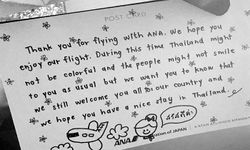 POST CARD
Thank you for flying with ANA. We hope you
enjoy our flight. During this time Thailand might
not be colorful and the people might not smile
to you as usual but we want you to know that
we still welcome you all our country and
we hope you have a nice stay in Thailand.
ANA
OF JAPAN